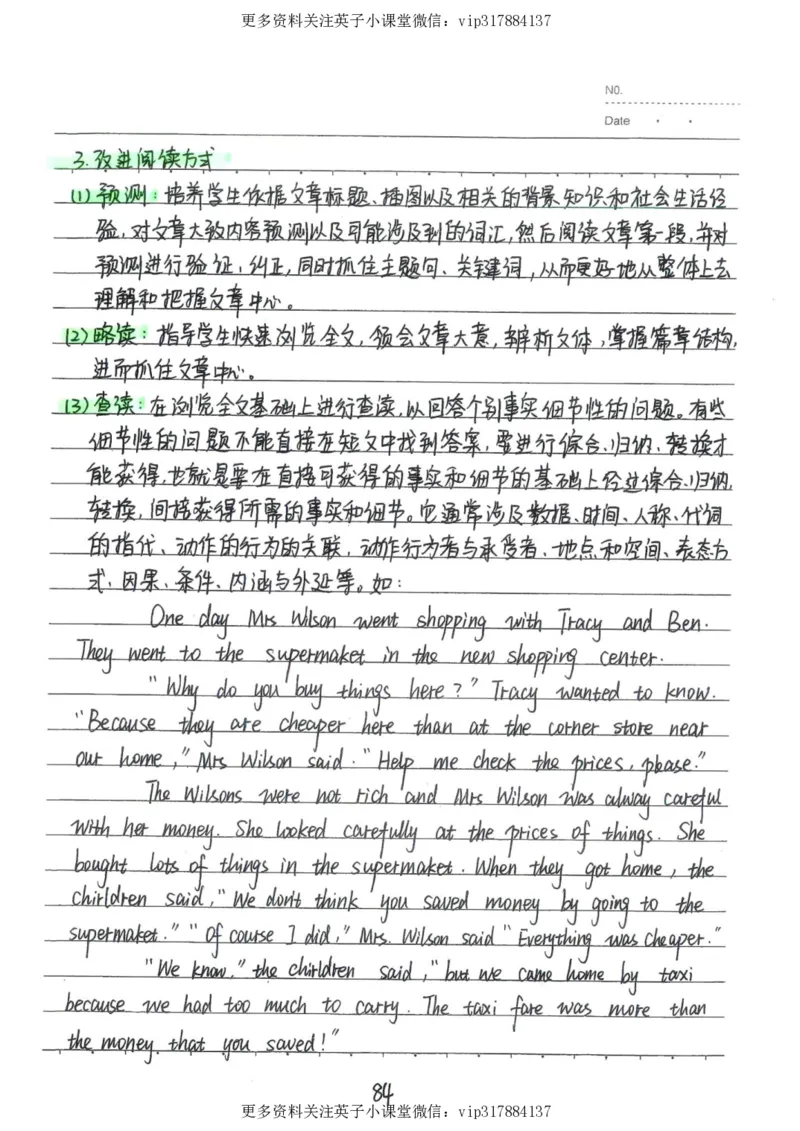 更多资料关注英子小课堂微信：vip317884137
NO.
Date
3.改进阅读方式
(1)预测：培养学生依据文章标题、插图以及相关的背景知识和社会生活经
验，对文章大致内容预测以及可能涉及到的词汇，然后阅读文章第一段，并对
预测进行验证，纠正，同时抓住主题句、关键词，从而更好地从整体上去
理解和把握文章中心。
(2)略读：指导学生快速浏览全文，领会文章大意，辨析文体，掌握篇章结构，
进而抓住文章中心。
(3)查读：在浏览全文基础上进行查读，以回答个别事实细节性的问题。有些
细节性的问题不能直接在短文中找到答案，要进行综合、归纳、转换才
能获得，也就是要在直接可获得的事实和细节的基础上经过综合、归纳，
转换，间接获得所需的事实和细节。它通常涉及数据、时间、人称、代词
的指代、动作的行为的关联，动作行为者与承受者、地点和空间、表态方
式、因果、条件、内涵与外延等。如：
One day Mrs Wilson went shopping with Tracy and Ben.
They went to the supermaket in the new shopping center.
"Why do you buy things here?" Tracy wanted to know.
"Because they are cheaper here than at the corner store near
our home," Mrs Wilson said. "Help me check the prices, please."
The Wilsons were not rich and Mrs Wilson was alway careful
with her money. She looked carefully at the prices of things. She
bought lots of things in the supermaket. When they got home, the
chirldren said, "We don't think you saved money by going to the
supermaket." "Of course I did," Mrs. Wilson said "Everything was cheaper."
"We know," the chirldren said, "but we came home by taxi
because we had too much to carry. The taxi fare was more than
the money that you saved!"
84
更多资料关注英子小课堂微信：vip317884137